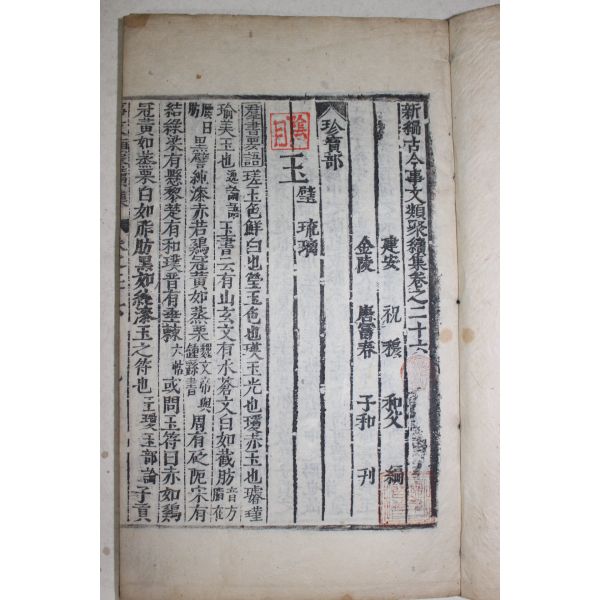 新編古今事文類聚續集卷之二十六
建安 祝穆 和父 編
金陵 唐富春 子和 刊
珍寶部
玉 璧 琉璃
群書要語瑳玉色鮮白也瑩玉色也瑛玉光也瓊赤玉也璠瑾
瑜美玉也 玉書云有山玄文有水蒼文白如截肪音方
黑譬純漆赤若鷄冠黃如蒸栗魏文帝與鍾繇書周有砥阨宋有
結綠梁有懸黎楚有和璞晉有垂棘六帖或問玉符曰赤如鷄
冠黃如蒸栗白如脂肪黑如純漆玉之符也王逸玉部論子貢